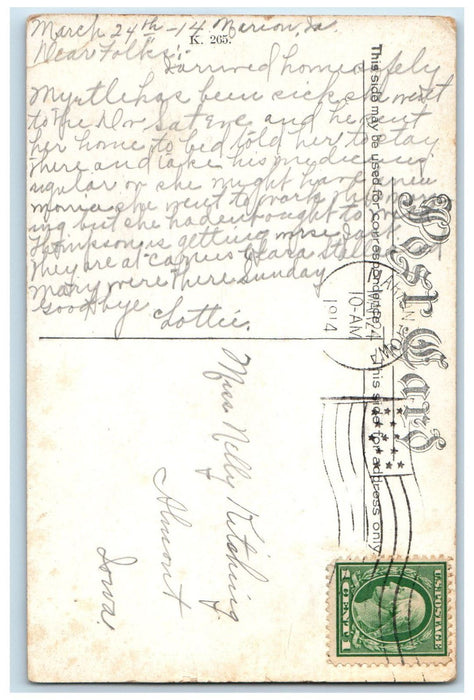 March 24th - 14 Marion, Ia.
K. 265.
Dear Folks:-
I arrived home safely
Myrtle has been sick she went
to the Dr Sat Eve and he sent
her home to bed told her to stay
there and take his medicine
regular or she might have pneu
monia she went to work this morn
ing but she hadent ought to
Thompson is getting
They are at Stella
Mary were there Sunday
Goodbye
Lottie.
This side may be used for correspondence
This side for address only
Post Card
MARION IOWA
MAR 24
10-AM
1914
Miss Nelly Kitching
Almont
Iowa
U.S. POSTAGE
1 ONE CENT 1